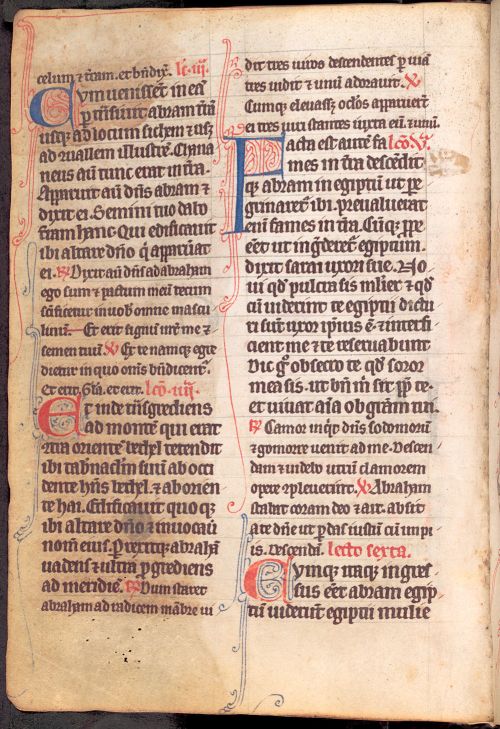 celum ⁊ t̄ram. et bn̄dix̄. lc̄. iij.
Cvm uenissent in eā
p̄transiuit abram t̄rā
usq; ad locum sichem ⁊ usq;
ad uallem illustrē. Chana
neus aut̄ tunc erat in t̄ra.
Apparuit aut̄ dn̄s abram ⁊
dixit ei. Semini tuo dabo
t̄ram hanc. Qui edificauit
ibi altare dn̄o q̇ apparuāt
ei. ℟ Dixit aut̄ dn̄s ad abraham
ego sum ⁊ pactum meū tecum
in uob̄ omne mascu
linū. Et erit signū int̄ me ⁊
semen tuū. ℣ Ex te namq; egre
dietur in quo om̄s bn̄dicent̄.
Et erit. Gl̄a. et erit. lc̄o. iiij.
Et inde t̄nsgrediens
ad montē qui erat
9tra orientē bethel tetendit
ibi tab̄naclm̄ suū ab occi
dente hn̄s bethel. ⁊ ab orien
te hai. Edificauit quoq;
ibi altare dn̄o ⁊ inuocauit
nom̄ eius. Perrexitq; abrahā
uadens ⁊ ultra p̄grediens
ad meridiē. ℟ Dum staret
abraham ad radicem mābre ui
dit tres uiros descendentes p̲ uiā
tres uidit ⁊ unū adorauit. ℣
Cumq; eleuasset ocl̄os apparuer̄t
ei tres uiri stantes iuxta eū. ⁊ unū.
Facta est autē fa lc̄o. V.
mes in t̄ra descēdit
q; abram in egiptū ut pe
g̓naretr̄ ibi. preualuerat
enī fames in t̄ra. Cūq; p̲pe
eēt ut ing̓deret̄ egiptum.
dixit sarai uxori sue. No
ui qd̄ pulcra sis mulier ⁊ qd̄
cū uiderint te egiptii dictu
ri sūt uxor ip̄ius ē ⁊ interfi
cient me ⁊ te reseruabunt
Dic g̊ obsecro te qd̄ soror
mea sis. ut bn̄ m̄ sit p̲p̄ te
et uiuat aīa ob grām tui.
℟ Clamor inq̇t dn̄s sodomorū
⁊ gomorre uenit ad me. Descen
dam ⁊ uidebo utrū clamorem
opere 9pleuerint. ℣ Abraham
stabat coram deo ⁊ ait. absit
a te dn̄e ut p̲das iustū cū impi
is. Descendā. lectō sexta.
Cvmq; itaq; ingres
sus eēt abram egip
tū uiderunt egiptii mulie